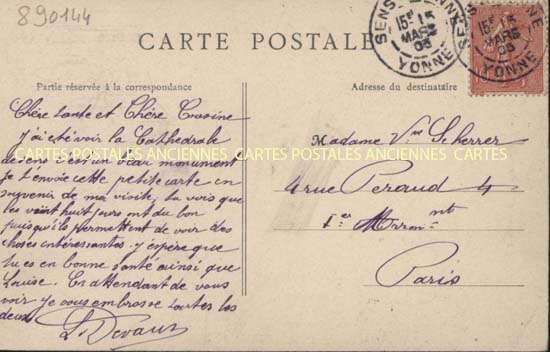 890144
SENS YONNE
15E 15
MARS
05
SENS YONNE
15E 15
MARS
05
CARTE POSTALE
Partie réservée à la correspondance
Adresse du destinataire
Chère tante et Chère Cosine
J'ai été voir la Cathédrale
de Sens c'est un vieux monument
je t'envoie cette petite carte en
souvenir de ma visite, tu vois que
les vingt huit jours ont du bon
puisqu'ils permettent de voir des
choses intéressantes j'espère que
tu es en bonne santé ainsi que
Louise. En attendant de vous
voir je vous embrasse toutes les
deux
L. Devaux
Madame Vve Scherrer
4 rue Perand 4
1er Arron nt
Paris
CARTES POSTALES ANCIENNES CARTES POSTALES ANCIENNES CARTES